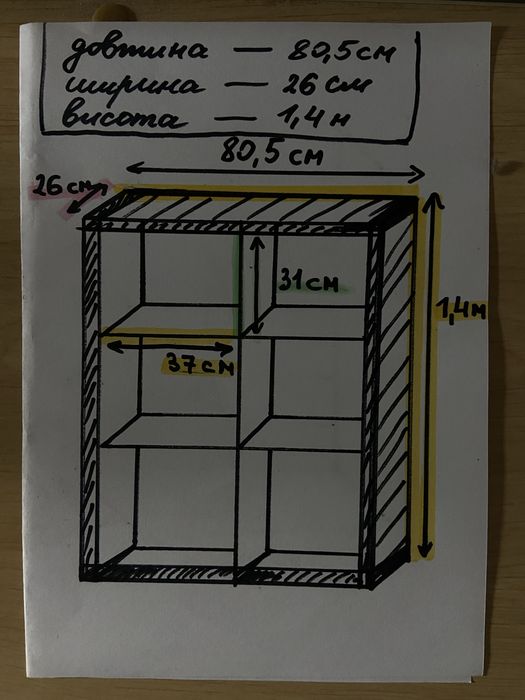 довтина — 80,5 см
ширина — 26 см
висота — 1,4 м
80,5 см
26 см
31 см
1,4 м
37 см